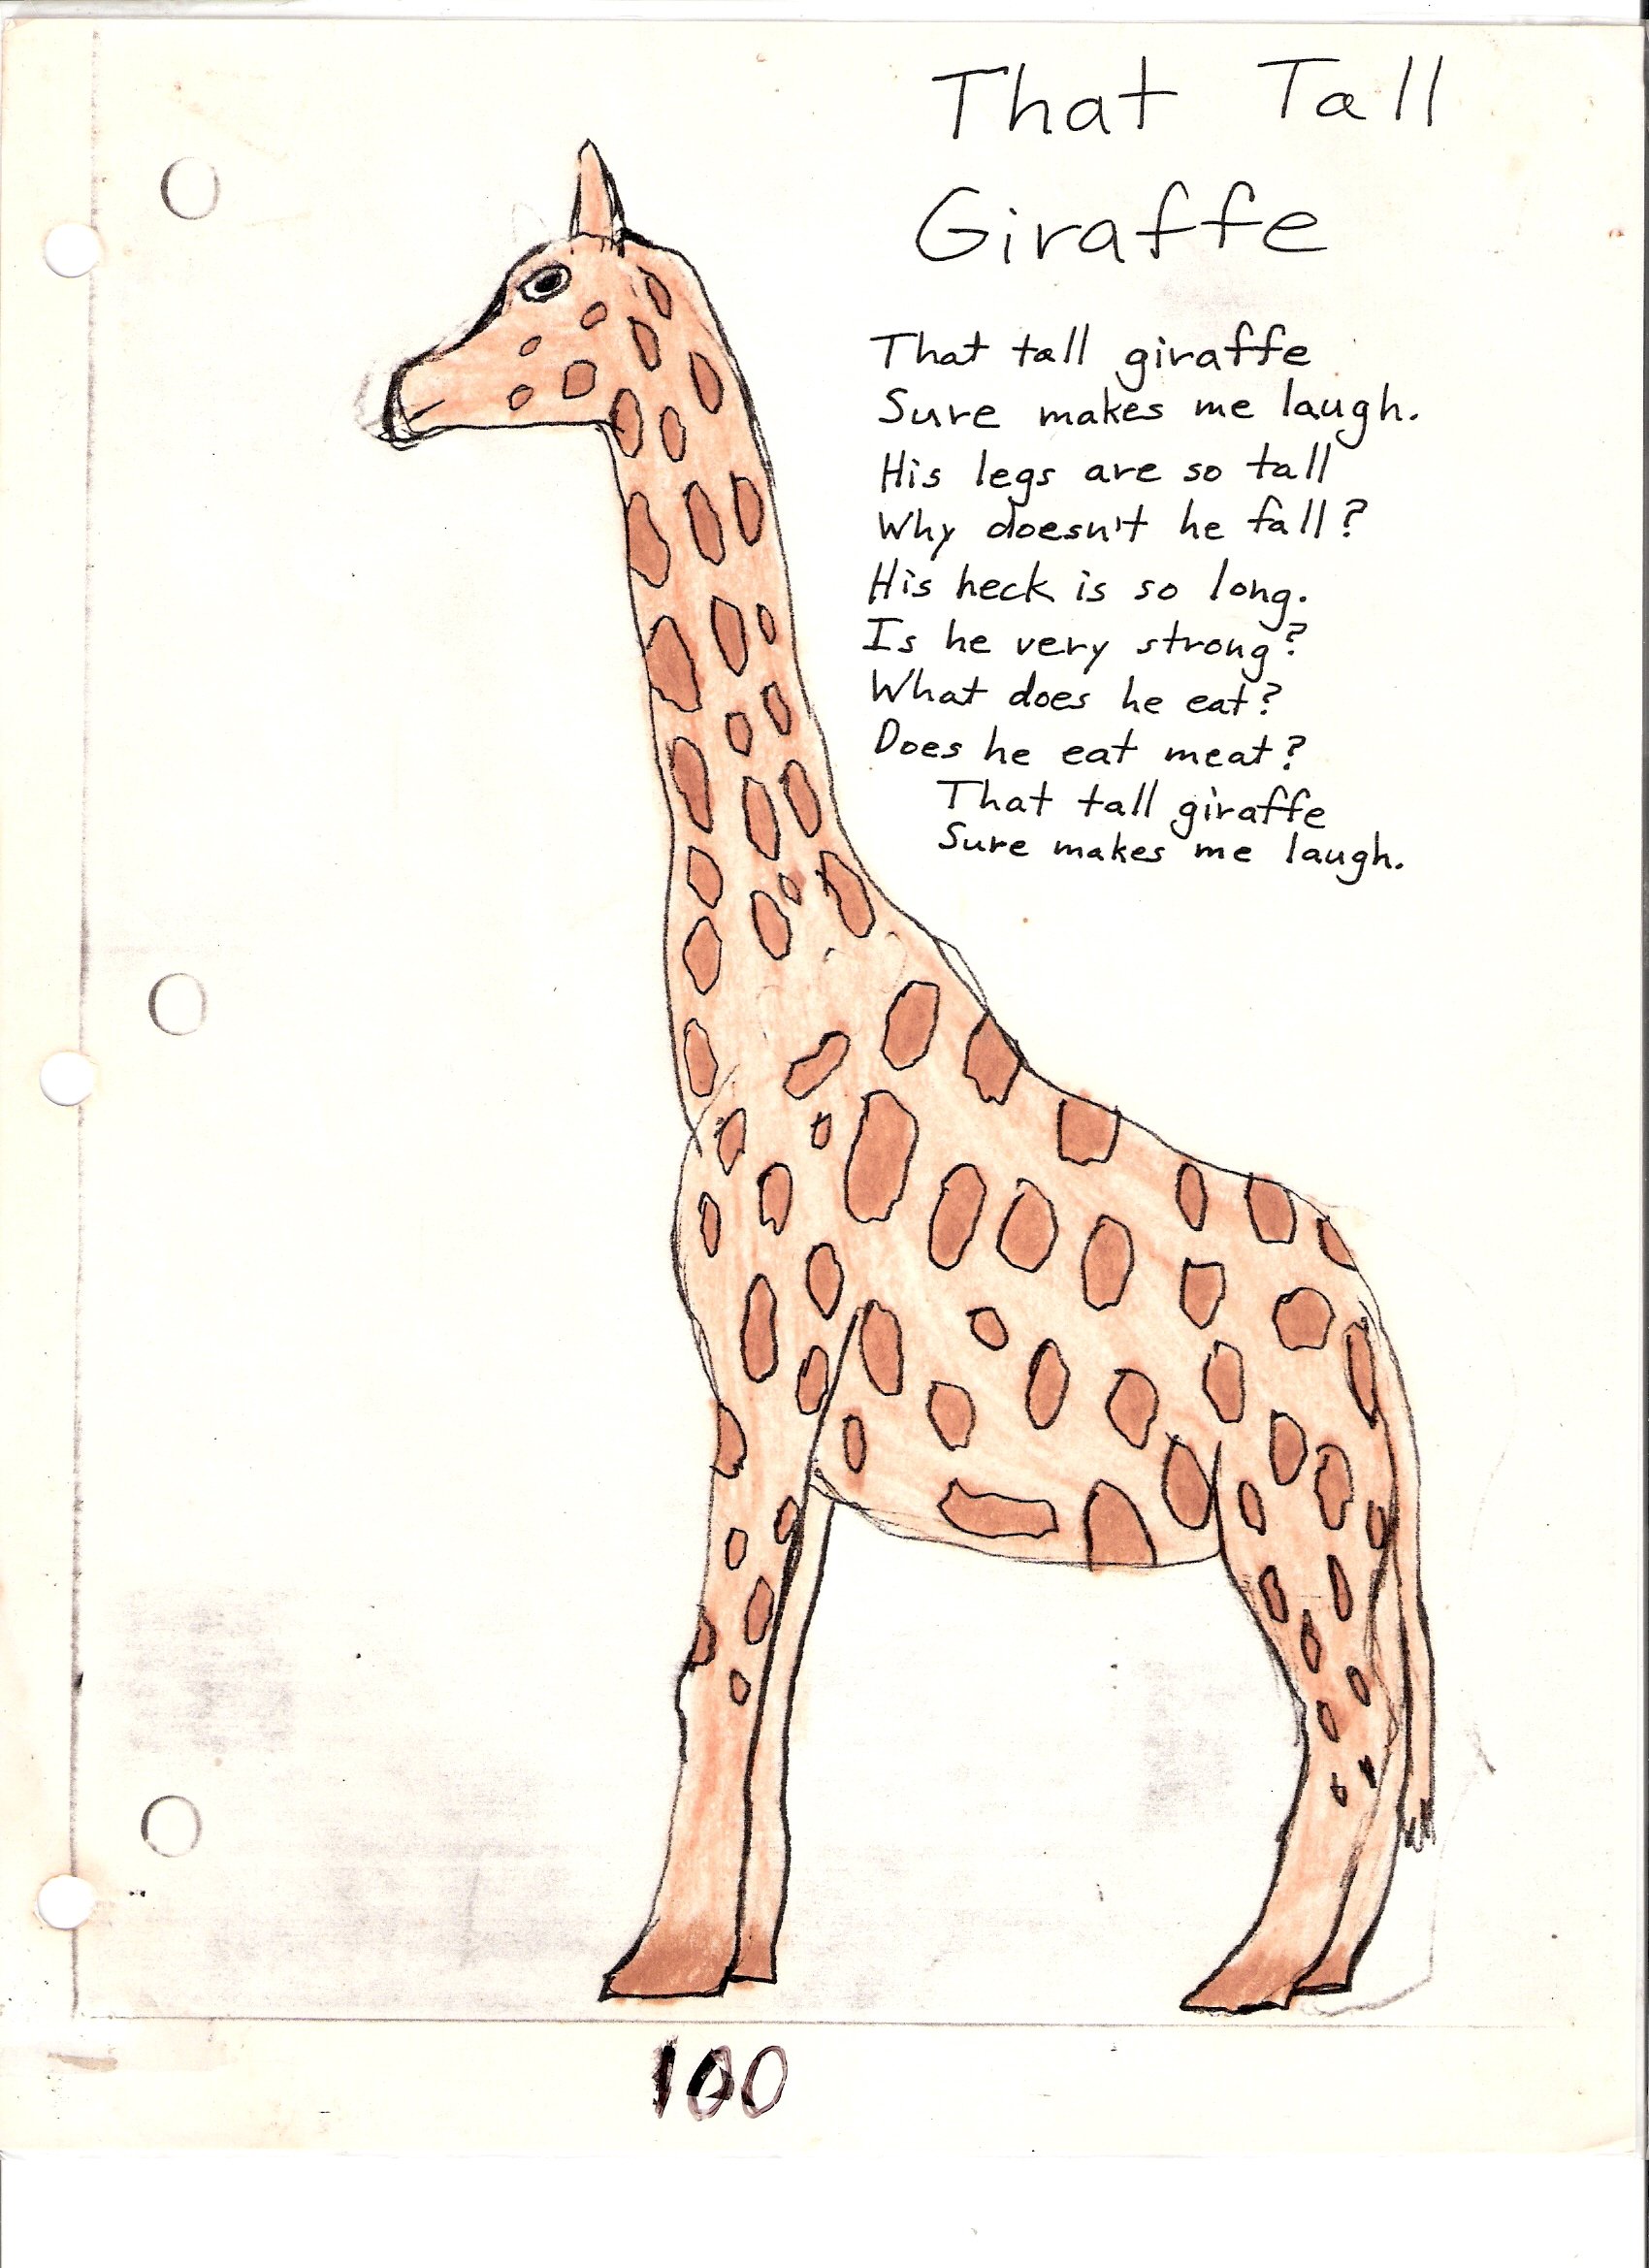 That Tall
Giraffe
That tall giraffe
Sure makes me laugh.
His legs are so tall
Why doesn't he fall?
His heck is so long.
Is he very strong?
What does he eat?
Does he eat meat?
That tall giraffe
Sure makes me laugh.
100